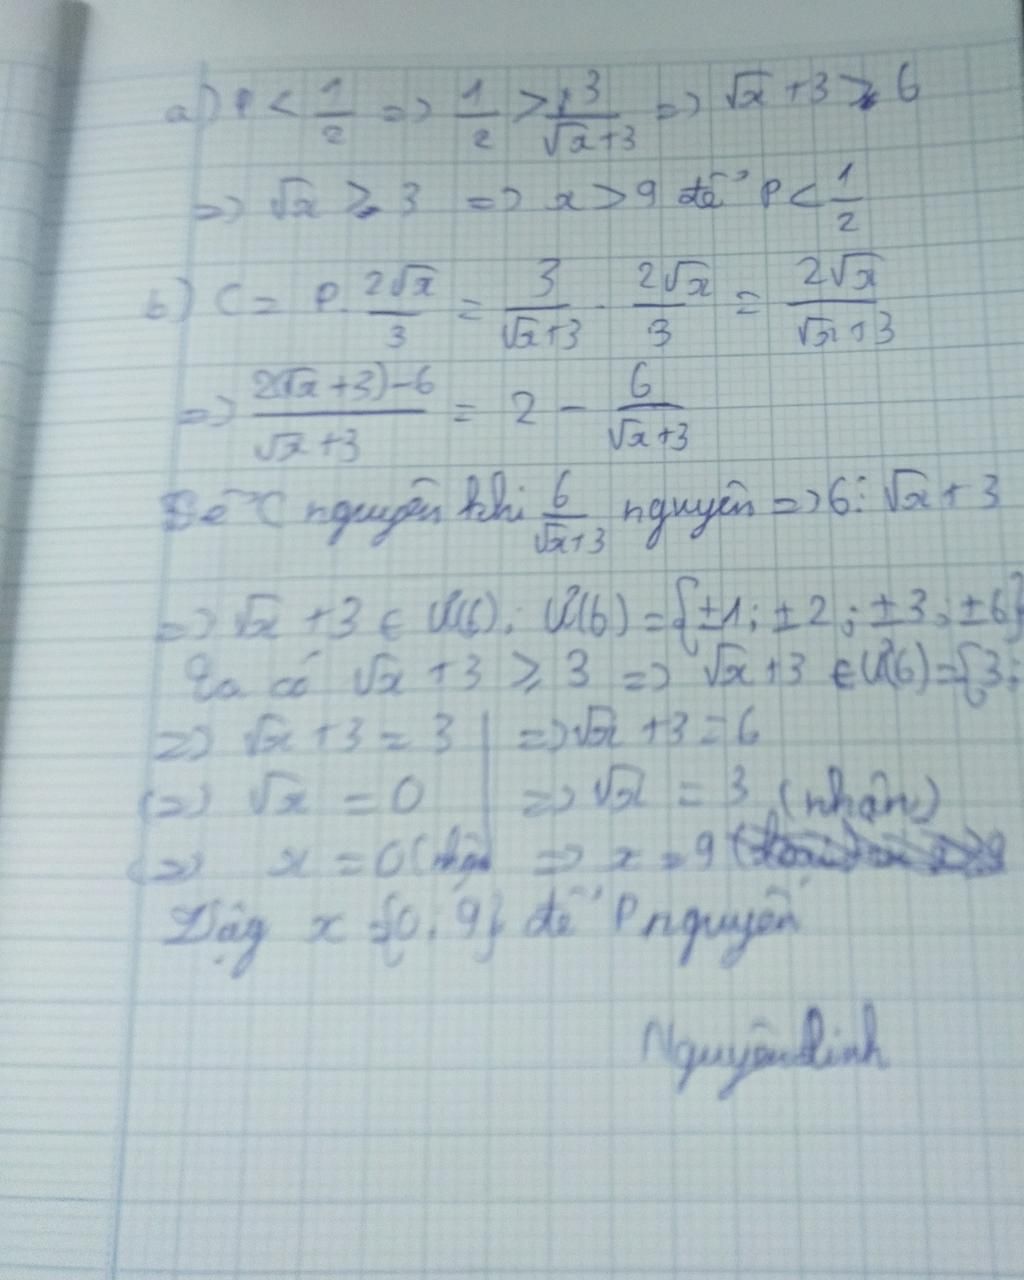 a) P < 1/2 => 1/2 > 3/(√x+3) => √x + 3 > 6
=> √x > 3 => x > 9 để P < 1/2
b) C = P. 2√x/3 = 3/(√x+3) . 2√x/3 = 2√x/(√x+3)
=> (2(√x+3)-6)/(√x+3) = 2 - 6/(√x+3)
Để C nguyên khi 6/(√x+3) nguyên => 6 ⋮ √x + 3
=> √x + 3 ∈ Ư(6). Ư(6) = {±1; ±2; ±3; ±6}
Ta có √x + 3 ≥ 3 => √x+3 ∈ Ư(6) = {3;
=> √x + 3 = 3 | => √x + 3 = 6
(=> √x = 0 | => √x = 3 (nhận)
(=> x = 0 (nhận | => x = 9
Vậy x {0; 9} để P nguyên